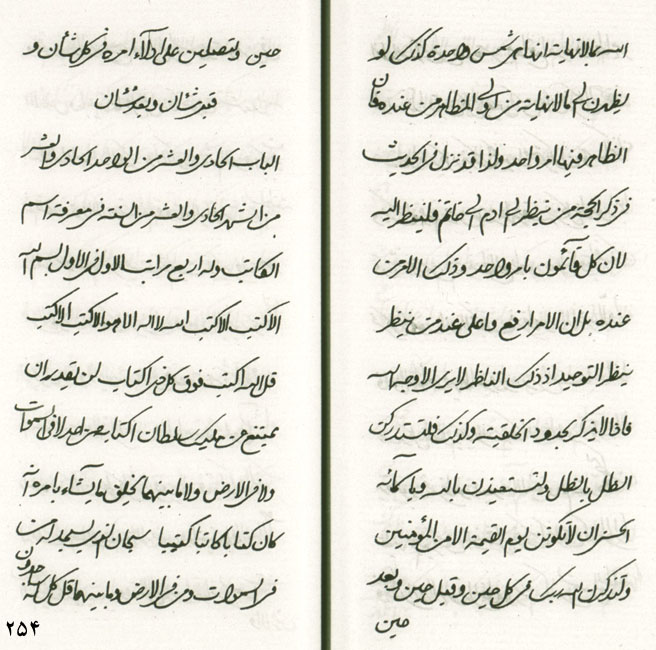 الله بمالانهاية انها هر شمس واحدة كذلك لو
يظهرن الى مالانهاية من اولى المظاهر من عنده فان
الظاهر فيها امر واحد ولذا قد نزل في الحديث
في ذكر الحجة من ينظر الى ادم الى خاتم فلينظر اليه
لان كل قائمون بامر واحد وذلك الامر من
عنده بل ان الامر ارفع واعلى عند من ينظر
بنظر التوحيد اذ ذلك الناظر لايرى الا وجه الله
فاذا لا يذكر بحدود الخلقية وكذلك فلتستدركن
الظل بالظل ولتستعيذن بالله وباسمائه
الحسنى ان لاتكونن يوم القيمة الا من المؤمنين
ولتذكرن الله ربك في كل حين وقبل حين وبعد
حين
حين ولتصلين على ادلاء امره في كل شأن و
قبل شان وبعد شان
الباب الحادى والعشر من الواحد الحادى والعشر
من الشهر الحادى والعشر من السنة في معرفة اسم
الكاتب وله اربع مراتب الاول في الاول بسم الله
الاكتب الاكتب الله لا اله الا هو الاكتب الاكتب
قل الله اكتب فوق كل ذى اكتاب لن يقدر ان
يمتنع عن مليك سلطان اكتابه من احد لا في السموات
ولا في الارض ولا ما بينهما يخلق ما يشاء بامره انه
كان كتابا كاتبا كتيبا سبحان الذى يسجد له من
في السموات ومن في الارض وما بينهما قل كل له
ساجدون
٢٥۴